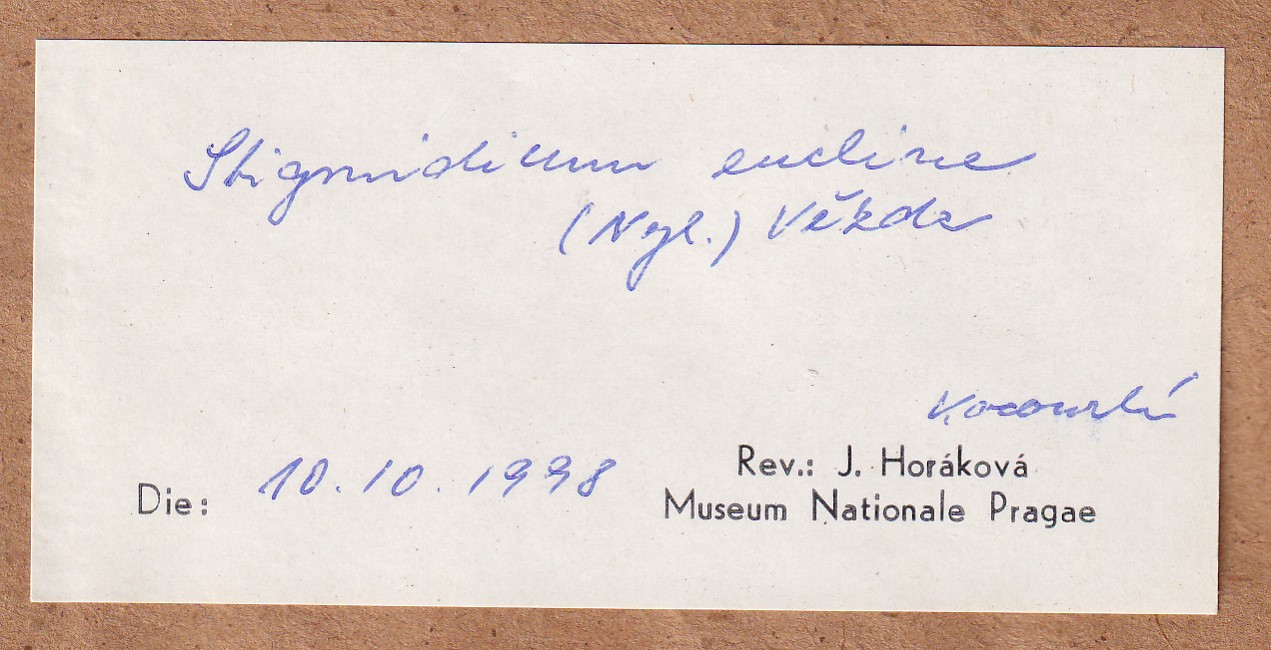 Stigmidium eucline
(Nyl.) Vězda
Kocourková
Rev.: J. Horáková
Die: 10.10.1998
Museum Nationale Pragae